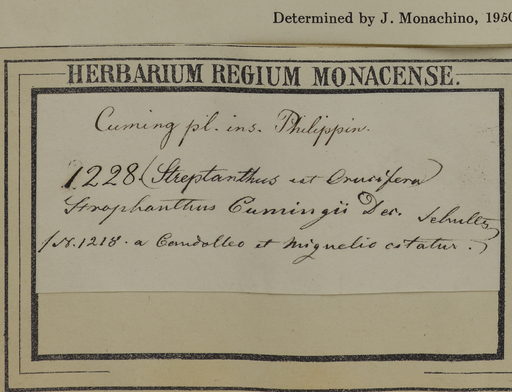 Determined by J. Monachino, 1950
HERBARIUM REGIUM MONACENSE.
Cuming pl. ins. Philippin.
1228. (Streptanthus est Crucifera)
Strophanthus Cumingii Dec. Schultz
(N. 1218. a Candolleo et Miquelio citatur.)